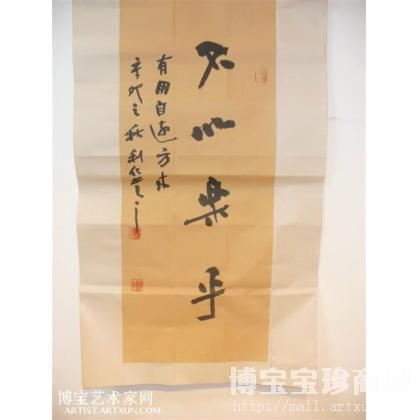 不亦乐乎
有朋自远方来
辛卯之秋利
博宝艺术家网
ARTIST.ARTXUN.COM
博宝宝珍商城
http://mall.artxun.com